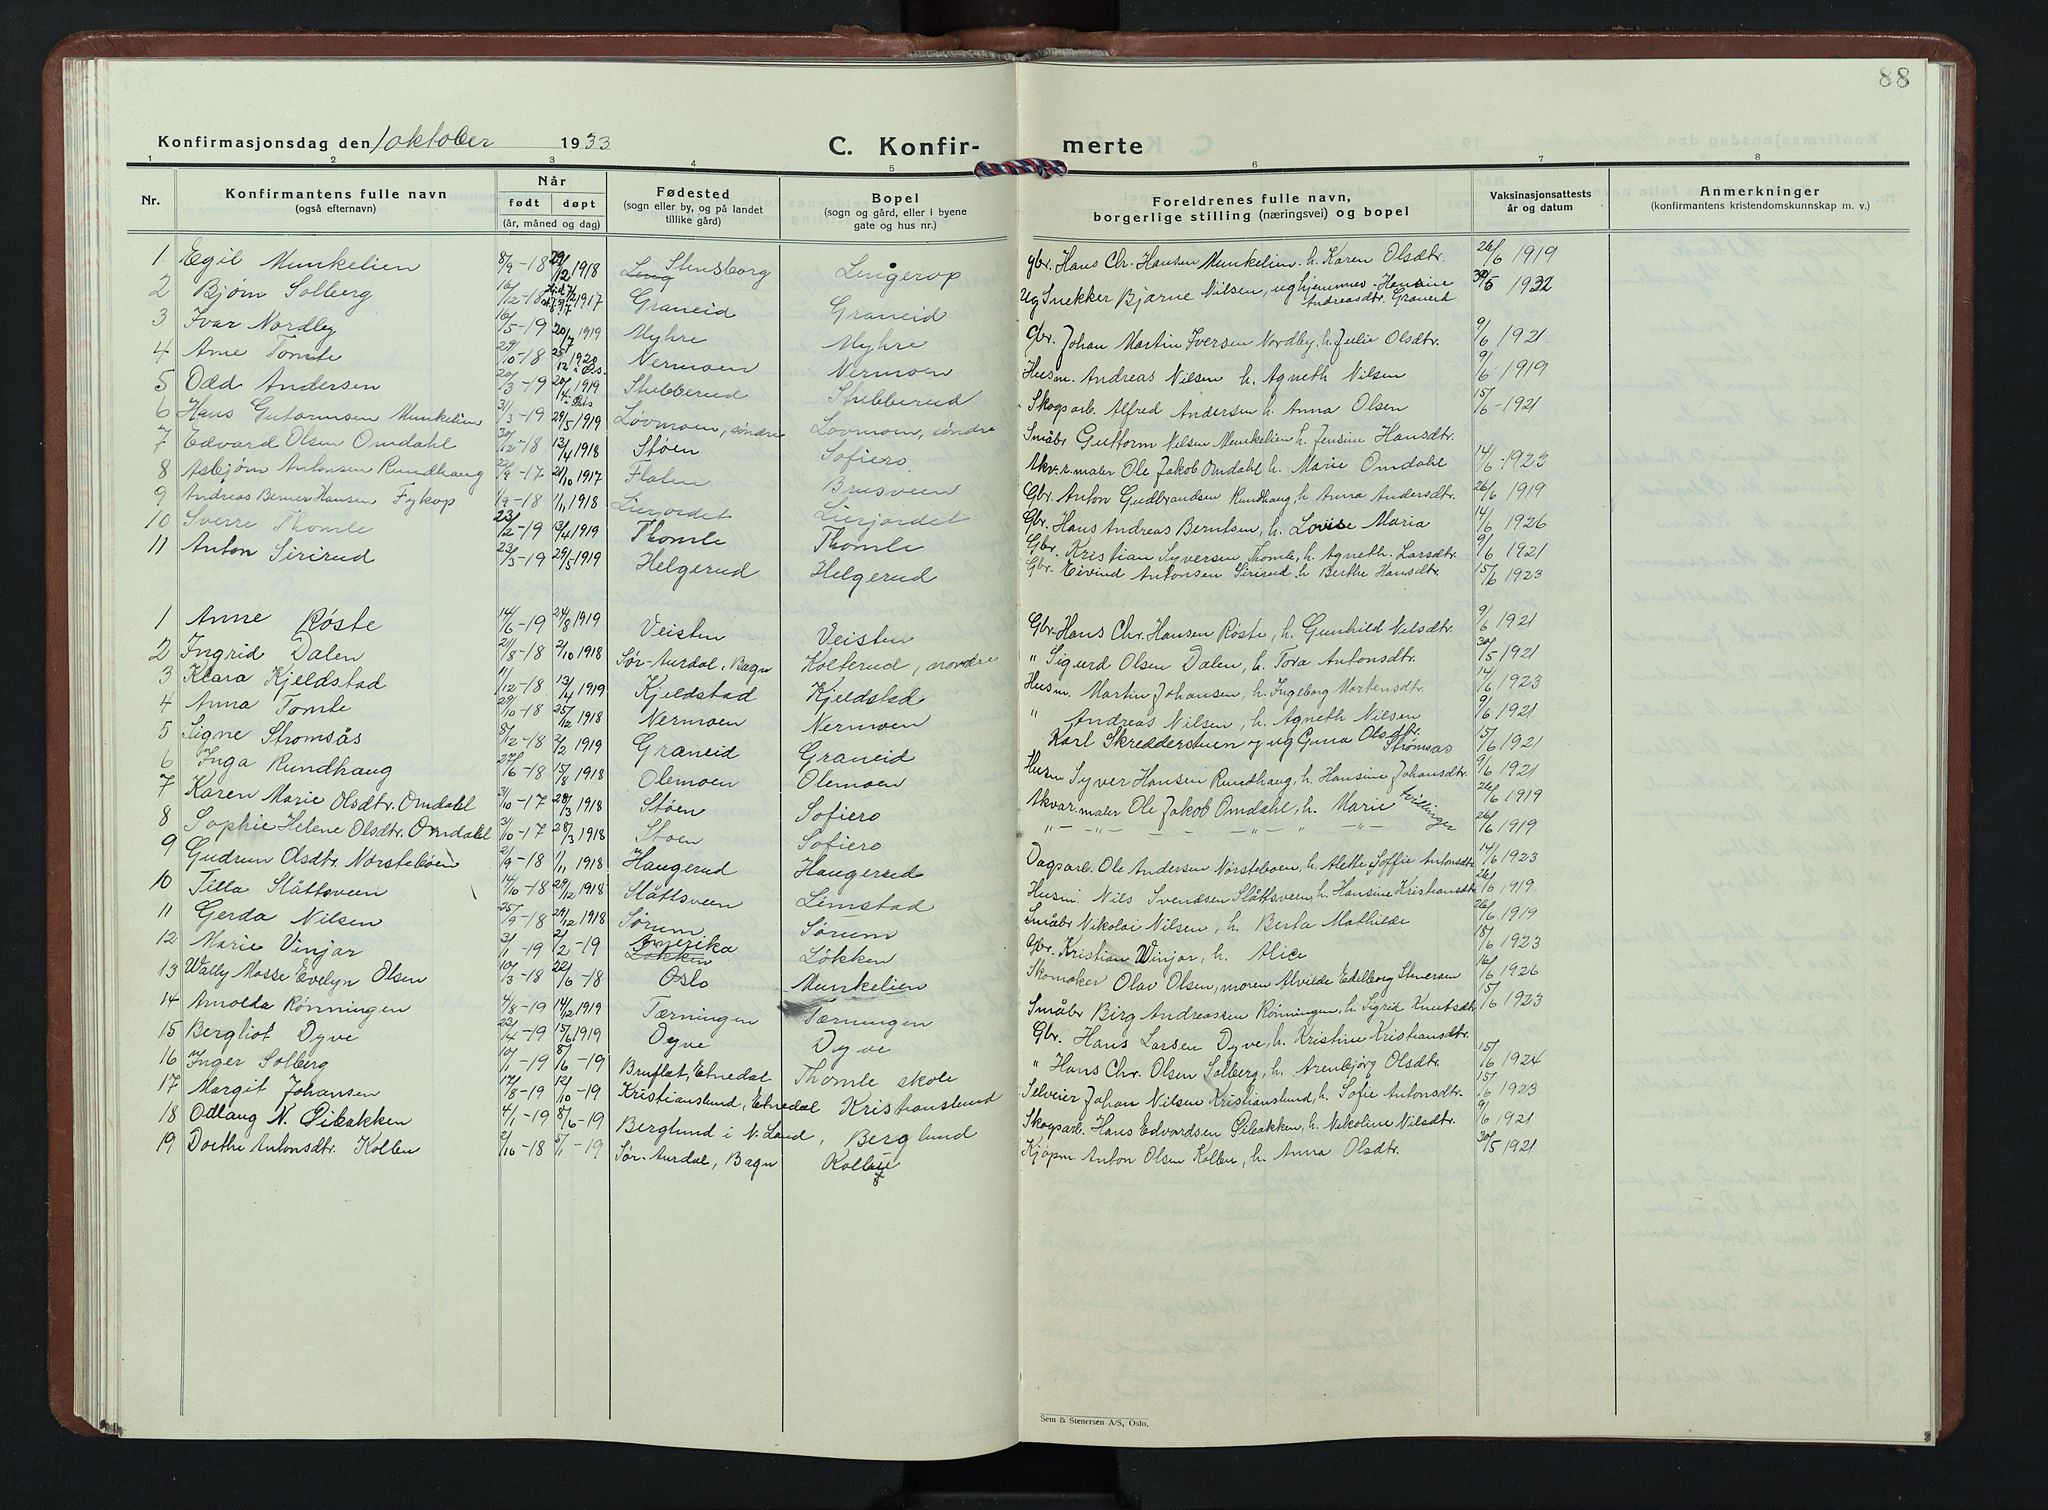 88
Konfirmasjonsdag den 1 oktober 1933 C. Konfir- merte
1 2 3 4 5 6 7 8
Nr. Konfirmantens fulle navn (også efternavn) Når født døpt (år, måned og dag) Fødested (sogn eller by, og på landet tillike gård) Bopel (sogn og gård, eller i byene gate og hus nr.) Foreldrenes fulle navn, borgerlige stilling (næringsvei) og bopel Vaksinasjonsattests år og datum Anmerkninger (konfirmantens kristendomskunnskap m. v.)
1 Egil Munkelien 8/9-18 29/12 1918 Stensborg Lingerop gbr. Hans Chr. Hansen Munkelien h. Karen Olsdtr. 26/6 1919
2 Bjørn Solberg 16/12-18 1917 Graneid Graneid Ug Snekker Bjarne Nilsen, ug hjemmev. Hansine Andreasdtr. Graneid 30/5 1932
3 Ivar Nordby 16/5-19 20/7 1919 Myhre Myhre Gbr. Johan Martin Iversen Nordby, h. Julie Olsdtr. 9/6 1921
4 Arne Tomle 29/10-18 25/12 1920 Nermoen Nermoen Husm. Andreas Nilsen h. Agneth Nilsen 9/6-1919
5 Odd Andersen 20/3-19 20/4 1919 Stubberud Stubberud Skogsarb. Alfred Andersen h. Anna Olsen 15/6-1921
6 Hans Guttormsen Munkelien 31/3-19 29/5 1919 Lövmoen, søndre Lovmoen, søndre Småbr Guttorm Nilsen Munkelien h. Jensine Hansdtr.
7 Edvard Olsen Omdahl 30/12-18 13/4 1918 Støen Sofiero Akv.r. maler Ole Jakob Omdahl h. Marie Omdahl 14/6-1923
8 Asbjørn Antonsen Rundhaug 22/9-17 21/10 1917 Flaten Brusveen Gbr. Anton Gudbrandsen Rundhaug, h. Anna Andersdtr. 26/6 1919
9 Andreas Berner Hansen Fykop 1/9-18 1/11 1918 Lierjordet Lierjordet Gbr. Hans Andreas Berntsen, h. Lovise Maria 14/6 1926
10 Sverre Thomle 23/2-19 13/4 1919 Thomle Thomle Gbr. Kristian Syversen Thomle, h. Agneth. Larsdtr. 9/6 1921
11 Anton Sirirud 23/3-19 29/5 1919 Helgerud Helgerud Gbr. Eivind Antonsen Sirirud h Berthe Hansdtr. 15/6 1923
1 Anne Røste 14/6-19 24/8 1919 Veisten Veisten Gbr. Hans Chr. Hansen Røste, h. Gunhild Nilsdtr. 9/6 1921
2 Ingrid Dalen 21/8-18 2/10 1918 Sør-Aurdal, Bagn Kolterud, nordre " Sigurd Olsen Dalen, h. Tora Antonsdtr. 30/5 1921
3 Klara Kjeldstad 11/12-18 13/4 1919 Kjeldstad Kjeldstad Husm. Martin Johansen, h. Ingeborg Mortensdtr. 14/6 1923
4 Anna Tomle 29/10-18 25/12 1918 Nermoen Nermoen " Andreas Nilsen, h. Agneth Nilsen 9/6 1921
5 Signe Strømsås 8/12-18 2/2 1919 Graneid Graneid Karl Skredderstuen og ug Guna Olsdtr. Strømsås 15/6 1921
6 Inga Rundhaug 27/6-18 15/8 1918 Olemoen Olemoen Husm Syver Hansen Rundhaug, h. Hansine Johansdtr. 9/6 1921
7 Karen Marie Olsdtr. Omdahl 31/10-17 28/3 1918 Støen Sofiero Akvar. maler Ole Jakob Omdahl, h. Marie tvillinger 26/6 1919
8 Sophie Helene Olsdtr. Omdahl 31/10-17 28/3 1918 Støen Sofiero " " " " " " 26/6 1919
9 Gudrun Olsdtr Nørsteböen 2/9-18 1/11 1918 Haugerud Haugerud Dagsarb. Ole Andersen Nørsteboen, h. Alette Soffie Antonsdtr. 14/6 1923
10 Tilla Slåttsveen 14/10-18 29/12 1918 Slåttsveen Limstad Husm. Nils Svendsen Slåttsveen, h. Hansine Kristiansdtr. 26/6 1919
11 Gerda Nilsen 25/9-18 24/12 1918 Sørum Sørum Småbr Nikolai Nilsen, h. Berta Mathilde 26/6 1919
12 Marie Vinjar 3/1-19 2/2-19 Amerika Løkken Løkken Gbr. Kristian Winjar, h. Alice 18/6 1923
13 Wally Mosse Evelyn Olsen 10/3-18 22/6-18 Oslo Munkelien Skomaker Olav Olsen, moren Alvilde Edelborg Stenersen 16/6 1926
14 Arnolda Rønningen 4/8-19 14/12 1919 Tærningen Tærningen Småbr Birg Andreassen Rønningen, h. Sigrid Knutsdtr. 15/6 1923
15 Bergliot Dyve 23/4-19 15/6 1919 Dyve Dyve Gbr. Hans Larsen Dyve, h. Kristine Kristiansdtr.
16 Inger Solberg 10/1-19 8/6-19 Bruflat, Etnedal Thomle skole " Hans Chr. Olsen Solberg, h. Arenbjørg Olsdtr. 15/6 1924
17 Margit Johansen 17/8-19 12/10-19 Kristianslund, Etnedal Kristianslund Selveier Johan Nilsen Kristianslund, h. Sofie Antonsdtr. 15/6 1923
18 Odlaug N. Pibakken 4/1-19 8/6-19 Berglund i N. Land, Berglund Skogsarb. Hans Edvardsen Pibakken, h. Nikoline Nilsdtr. 9/6 1921
19 Dorthe Antonsdtr. Kolben 2/10-18 5/1-19 Sør-Aurdal, Bagn Kolben Kjøpm. Anton Olsen Kolben, h. Anna Olsdtr. 30/5 1921
Sem & Stenersen A/S, Oslo.